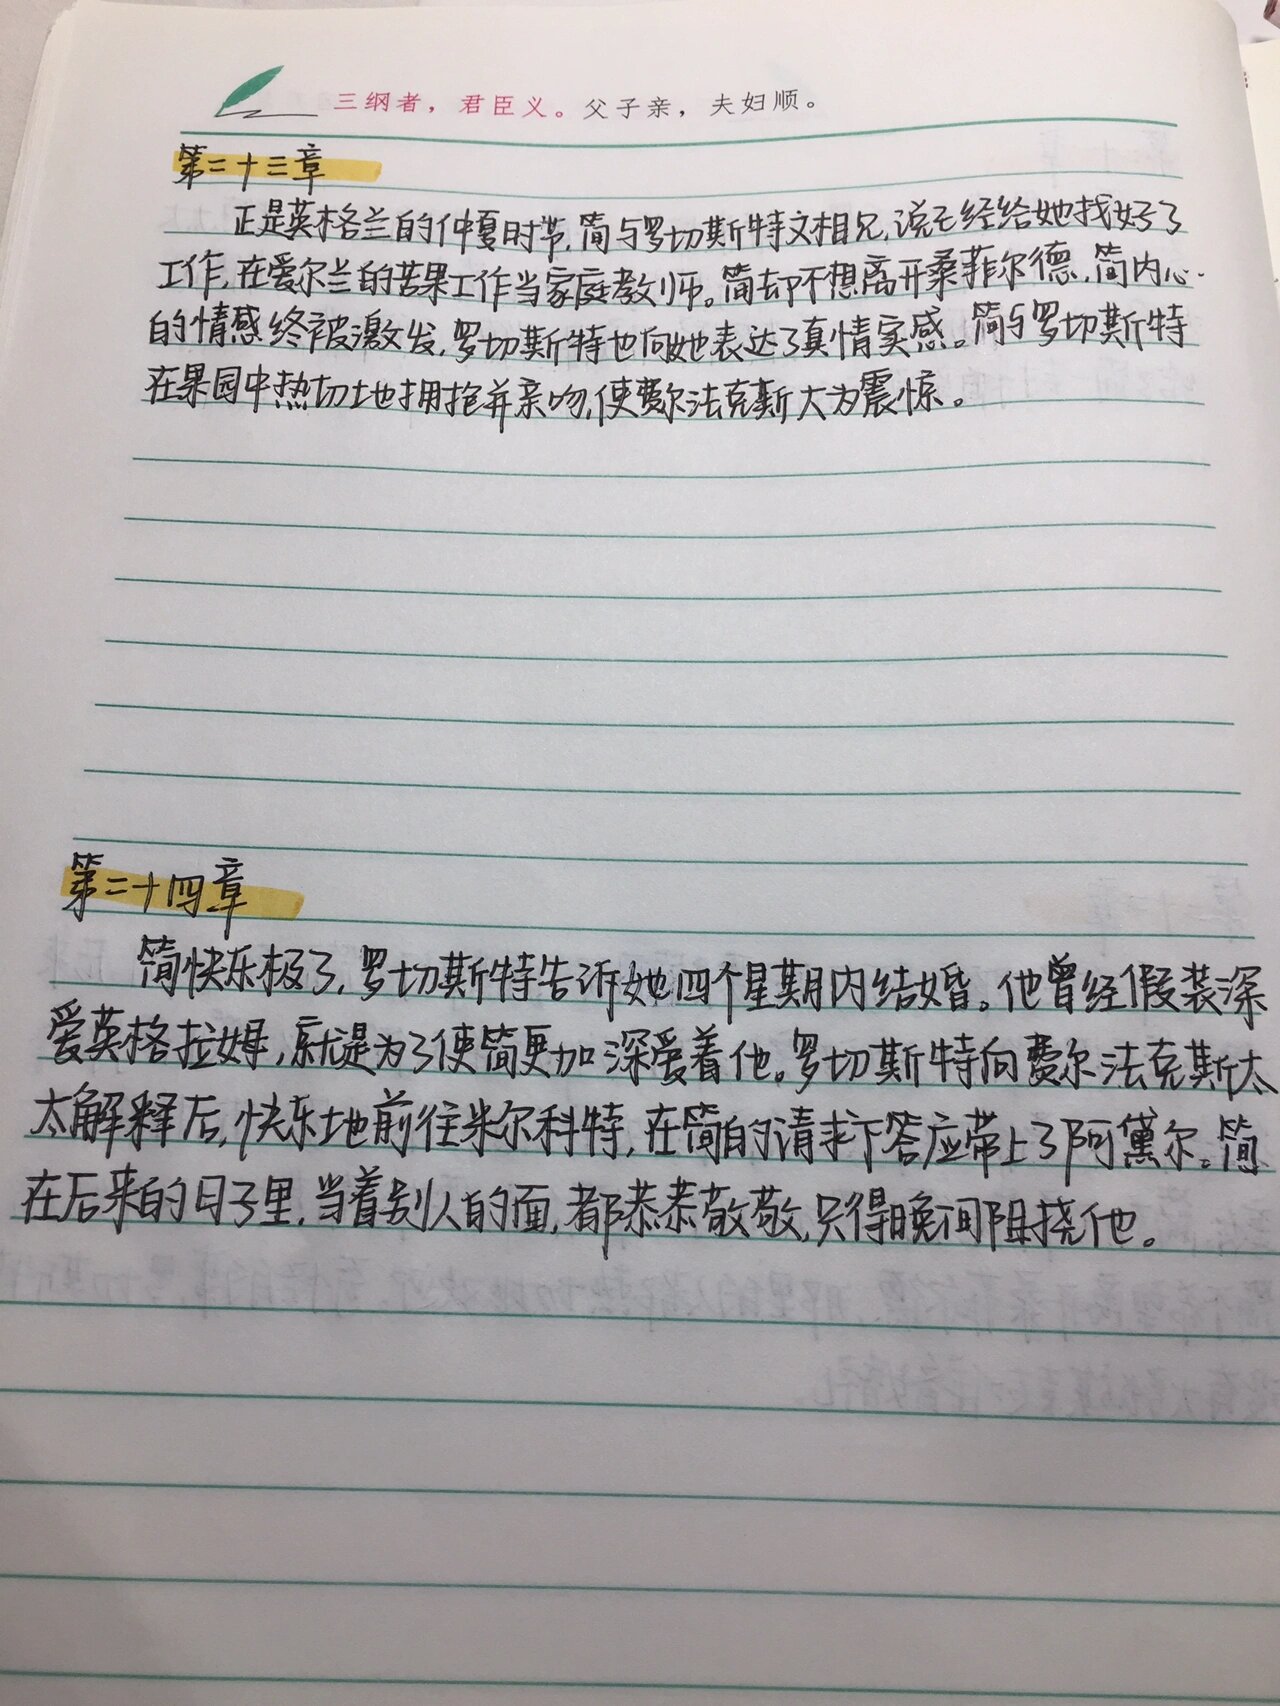 三纲者，君臣义。父子亲，夫妇顺。
第二十三章
正是英格兰的仲夏时节,简与罗切斯特文相见,说已经给她找好了
工作,在爱尔兰的苦果工作当家庭教师。简却不想离开桑菲尔德,简内心
的情感终被激发,罗切斯特也向她表达了真情实感。简与罗切斯特
在果园中热切地拥抱并亲吻,使费尔法克斯大为震惊。
第二十四章
简快乐极了,罗切斯特告诉她四个星期内结婚。他曾经假装深
爱英格拉姆,就是为了使简更加深爱着他。罗切斯特向费尔法克斯太
太解释后,快乐地前往米尔科特,在简的请求下答应带上了阿黛尔。简
在后来的日子里,当着别人的面,都恭恭敬敬,只得晚间阻挠他。